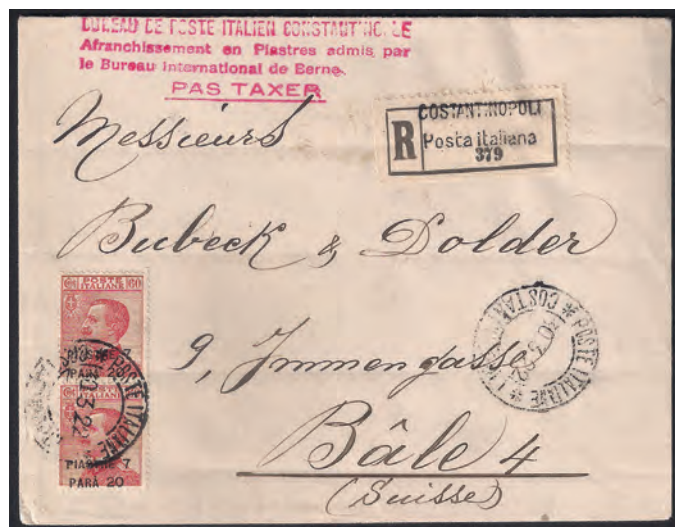 BUREAU DE POSTE ITALIEN CONSTANTINOPLE
Afranchissement en Piastres admis par
le Bureau International de Berne.
PAS TAXER
COSTANTINOPOLI
R Posta italiana
379
Messieurs
Bubeck & Dolder
9, Immengasse
Bâle 4
(Suisse)
POSTE
ITALIANE 60
PIASTRE 7
PARA 20
ITALIANE
PIASTRE 7
PARA 20
* POSTE ITALIANE *
20.3.22
* POSTE ITALIANE *
20.3.22